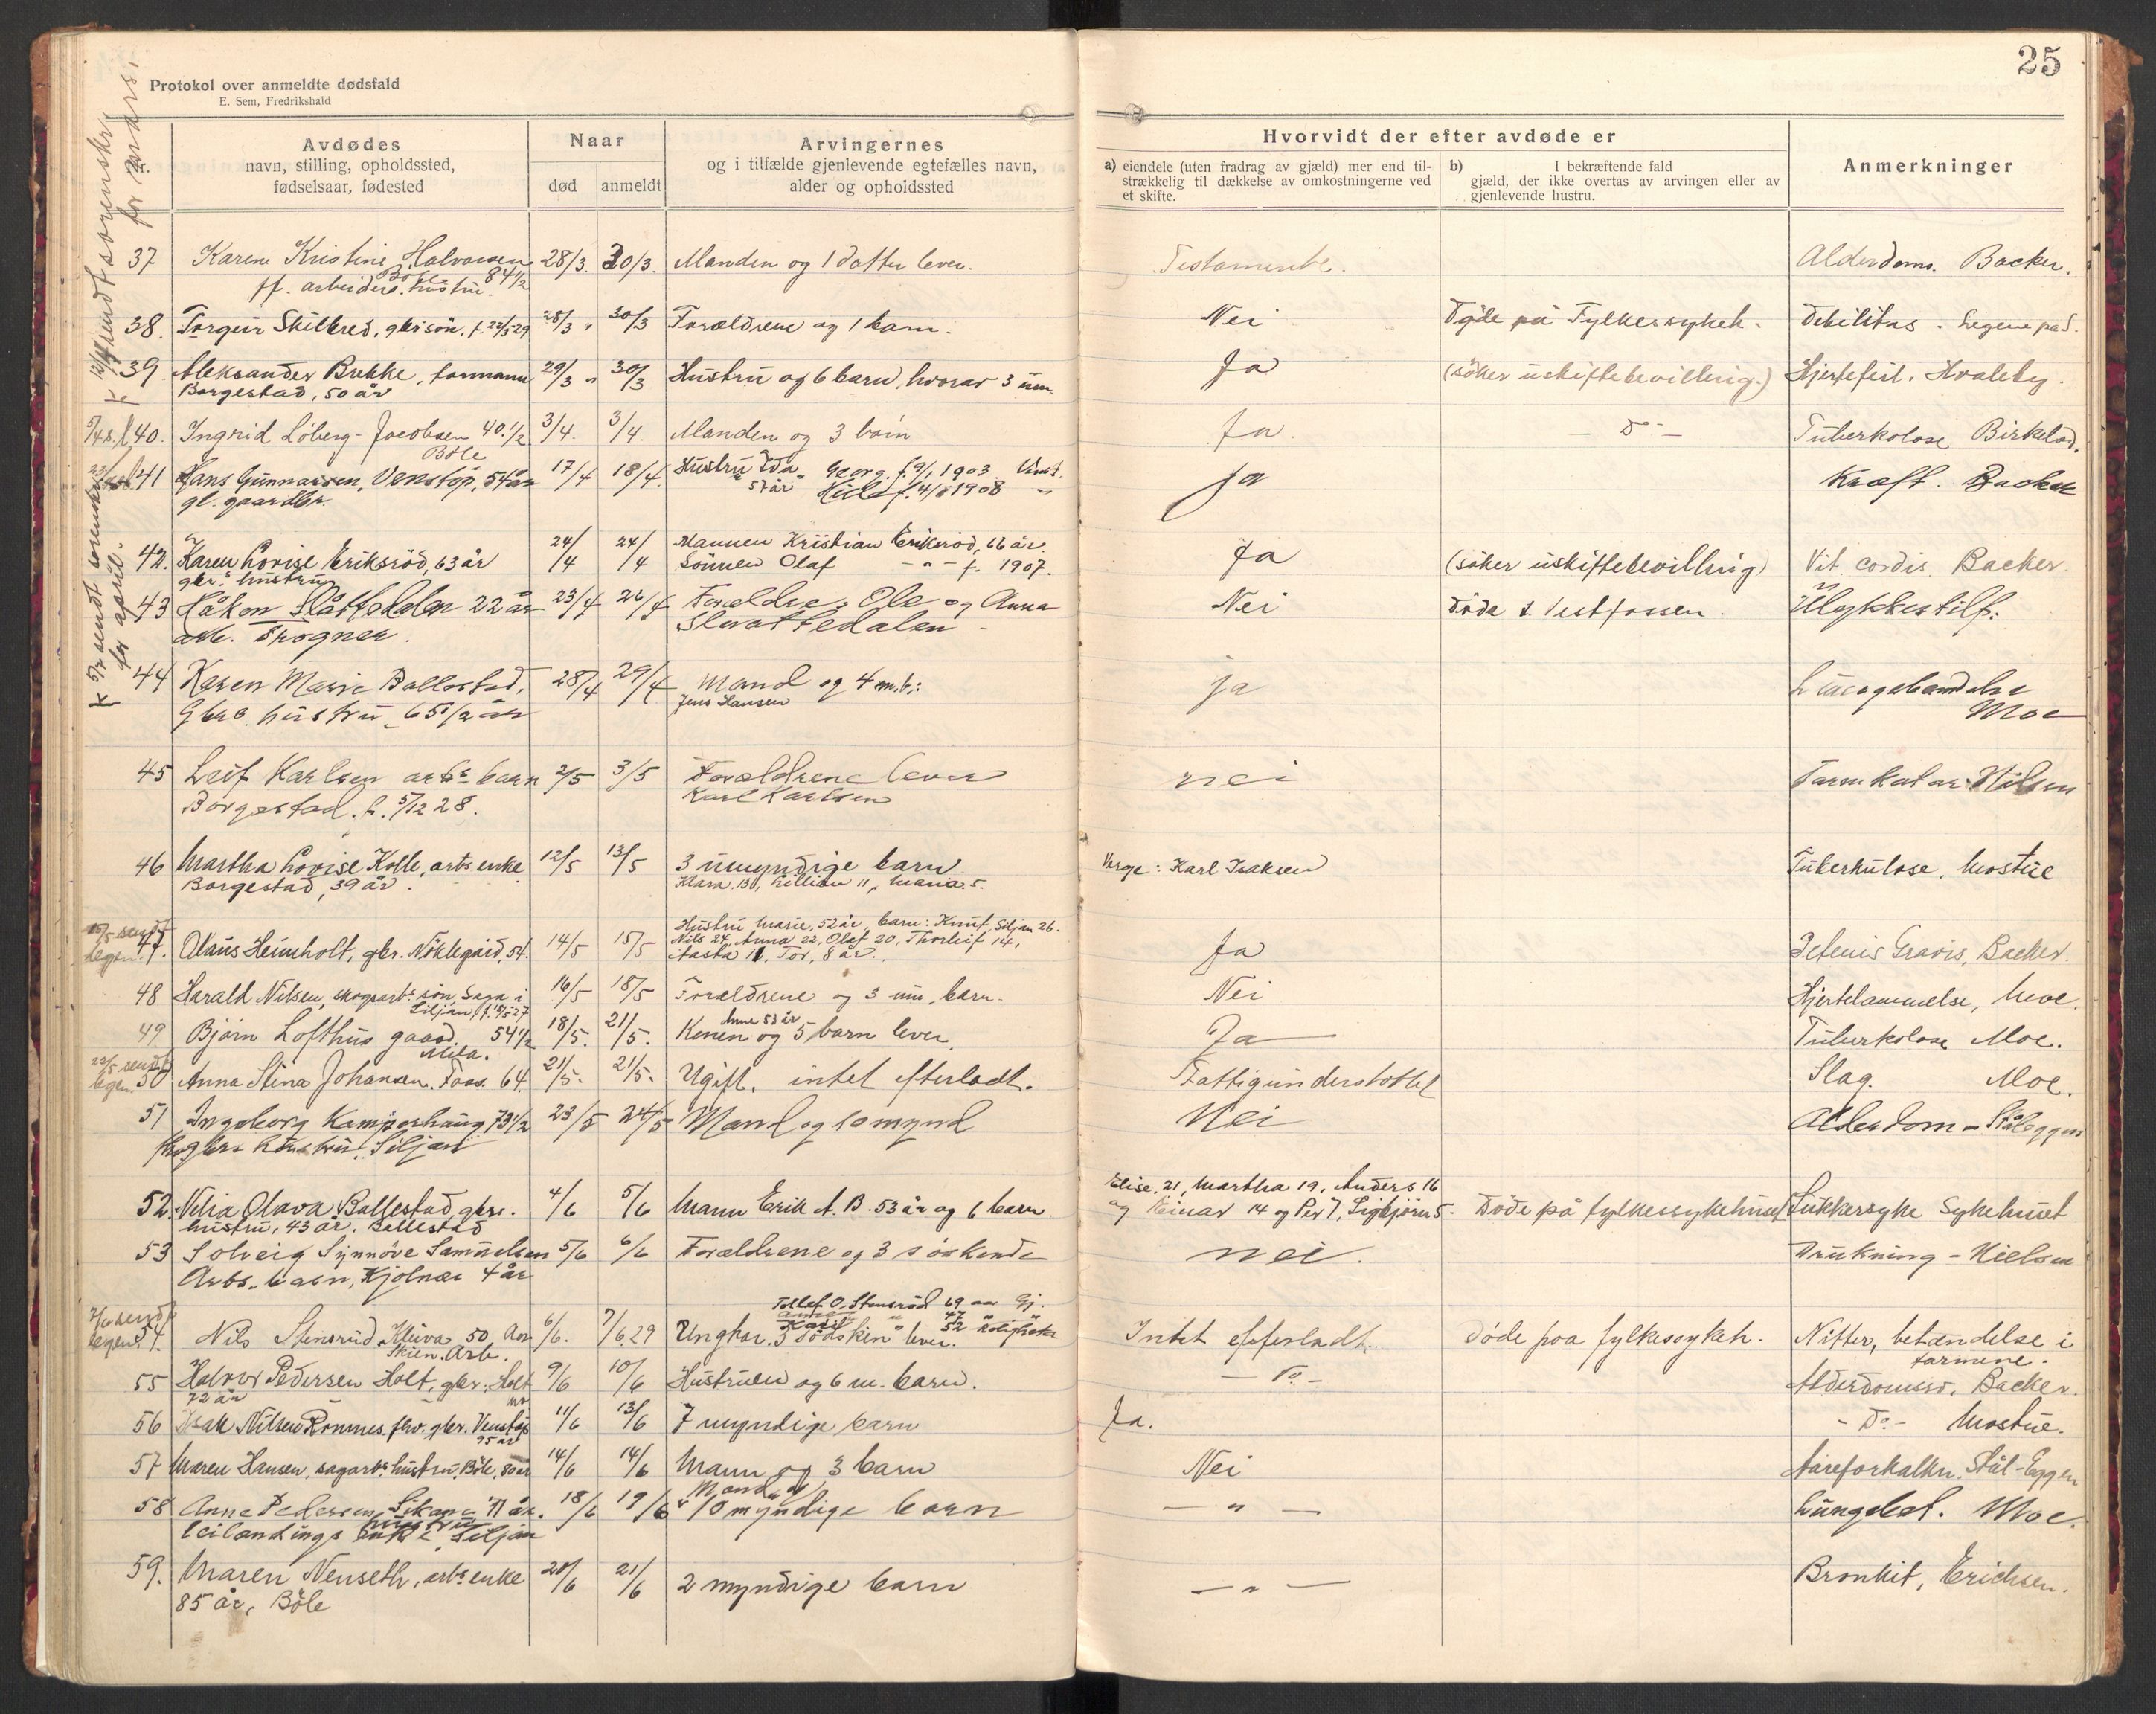 25
Protokol over anmeldte dødsfald
E. Sem, Fredrikshald
Nr.
Avdødes
navn, stilling, opholdssted,
fødselsaar, fødested
Naar
død
anmeldt
Arvingernes
og i tilfælde gjenlevende egtefælles navn,
alder og opholdssted
Hvorvidt der efter avdøde er
a) eiendele (uten fradrag av gjæld) mer end til-
strækkelig til dækkelse av omkostningerne ved
et skifte.
b) I bekræftende fald
gjæld, der ikke overtas av arvingen eller av
gjenlevende hustru.
Anmerkninger
sendt sorenskr.
for mars.
37 Karen Kristine Halvorsen 28/3. 30/3. Manden og 1 datter lever. Testamente. Alderdoms. Backer.
ff. arbeiders hustru. Böle 84 1/2
38. Torgeir Skilbred, gbr. sön, f. 22/3 29 28/3 " 30/3 Forældrene og 1 barn. Nei Döde på Fylkessykeh. Debilitas.
12/4
39 Aleksander Brekke, formann 29/3 " 30/3 Hustru og 6 barn, hvorav 3 um. Ja (söker uskiftebevilling.) Hjertefeil. Hvaleby.
Borgestad, 50 år
40. Ingrid Löberg-Jacobsen 40 1/2 3/4. 3/4. Manden og 3 barn Ja. - Do - Tuberkolose Birkelad.
Böle
41 Hans Gunnarsen, Venstöp, 54 år 17/4 18/4. Hustru Ida Georg. f. 9/1 1903 Venst. Ja Kræft. Backer
gl. gaardbr. 57 år 1908 "
sendt sorenskr.
for april.
42. Karen Lovise Eriksröd, 63 år 24/4 24/4 Mannen Kristian Eriksröd, 66 år. Ja (söker uskiftebevilling) Vit. cordis. Backer.
gbr. hustru Sönnen Olaf - " - f. 1907.
43 Håkon Slåttedalen 22 år 23/4 26/4 Forældre: Ole og Anna Nei Döde i Vestfossen. Ulykkestilf.
arb. Skogner. Slaattedalen
44 Karen Marie Ballestad, 28/4 29/4 Mand og 4 m. b.: ja Lungebetændelse
Gbrs. hustru 65 1/2 år Jens Hansen Moe
45 Leif Karlsen arbs barn 2/5 3/5 Forældrene lever nei Tarmkatar
Borgestad. f. 5/12 28. Karl Karlsen
46 Martha Lovise Kolle, arbs enke 12/5 13/5 3 umyndige barn Verge: Karl Isaksen Tuberkulose. Mostue
Borgestad, 39 år. Klara 13, Lillian 11, Maria 5.
15/5 sendt
legen.
Hustru Marie, 52 år, barn: Knut, Siljan 26.
47. Olaus Heimholt, gbr. Nöklegård, 54. 14/5 15/5 Nils 24, Anna 22, Olaf 20, Thorleif 14, Ja Ictenis Gravis, Backer.
Aasta 11, Tor, 8 år.
48 Harald Nilsen, skogsarbs sön, Saga i 16/5 18/5 Forældrene og 3 um. barn. Nei Hjertelammelse, Moe.
Siljan,
49 Björn Lofthus gaard. 54 1/2 18/5. 21/5. Konen og 5 barn lever. Ja Tuberkolose Moe.
Mæla. Anne 53 år
22/5 sendt
legen.
50 Anna Stina Johansen. Foss. 64. 21/5. 21/5. Ugift. intet efterladt. Fattigunderstöttet Slag. Moe.
51 Ingeborg Kamperhaug 73 1/2 23/5 24/5 Mand og 10 mynd Nei Alderdom - Stål eggen
hustru. Siljan
Elise, 21, Martha 19, Anders 16
52. Nilia Olava Ballestad, gbrs. 4/6 5/6 Mann Erik A. B. 53 år og 6 barn og Einar 14 og Per 7, Sigbjörn 5. Döde på fylkessykehuset Sukkersyke Sykehuset
hustru, 43 år. Ballestad
53 Solveig Synnöve Samuelsen 5/6 6/6 Forældrene og 3 söskende nei. Drukning - Nielsen
Arbs. barn, Kjölnes 4 år
legen
Tollef O. Stensröd 69 aar Gj.
54. Nils Stensrud Kleiva 50 Aar 6/6. 7/6 29 Ungkar. 3 Södskin lever. Intet efterladt. Döde paa fylkessykeh. Nifter, betændelse i
Skien. Arb. tarmene.
55 Halvor Pedersen Holt, gbr. Holt 9/6 10/6 Hustruen og 6 m. barn. - Do - Alderdomssv. Backer.
72 år
56 Isak Nilsen Romnes, fhv. gbr. Venstöp 11/6 13/6 7 myndige barn Ja. - Do - Mostue.
95 år
57 Maren Hansen, sagarbs hustru, Böle, 80 år 14/6 14/6 Mann og 3 barn Nei Åreforkalkn. Stål-Eggen
58 Anne Pedersen, 71 år. 18/6 19/6 Mand og 10 myndige barn - " - Lungebet. Moe.
leilændings hustru Siljan
59. Maren Nenseth, arbs enke 20/6 21/6 2 myndige barn - " - Bronkit, Erichsen.
85 år, Böle